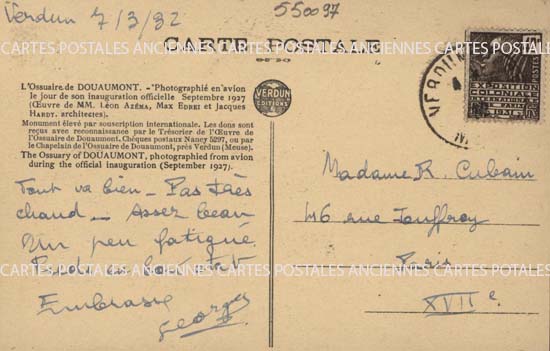 Verdun 7/3/32
550097
CARTE POSTALE
L'Ossuaire de DOUAUMONT. - Photographié en avion
le jour de son inauguration officielle Septembre 1927
(Œuvre de MM. Léon AZÉMA, Max EDREI et Jacques
HARDY, architectes).
Monument élevé par souscription internationale. Les dons sont
reçus avec reconnaissance par le Trésorier de l'Œuvre de
l'Ossuaire de Douaumont, Chèques postaux Nancy 5297, ou par
le Chapelain de l'Ossuaire de Douaumont, près Verdun (Meuse).
The Ossuary of DOUAUMONT, photographed from avion
during the official inauguration (September 1927).
VERDUN
EDITIONS
Tout va bien - Pas très
chaud - assez beau
Un peu fatigué.
en bon état
Embrasse
Georges
VERDUN
POSTES
EXPOSITION
COLONIALE
INTERNATIONALE
PARIS
Madame R. Cubain
46 rue Jouffroy
Paris
XVIIe
CARTES POSTALES ANCIENNES CARTES POSTALES ANCIENNES CARTES POSTALES ANCIENNES
CARTES POSTALES ANCIENNES CARTES POSTALES ANCIENNES CARTES POSTALES ANCIENNES